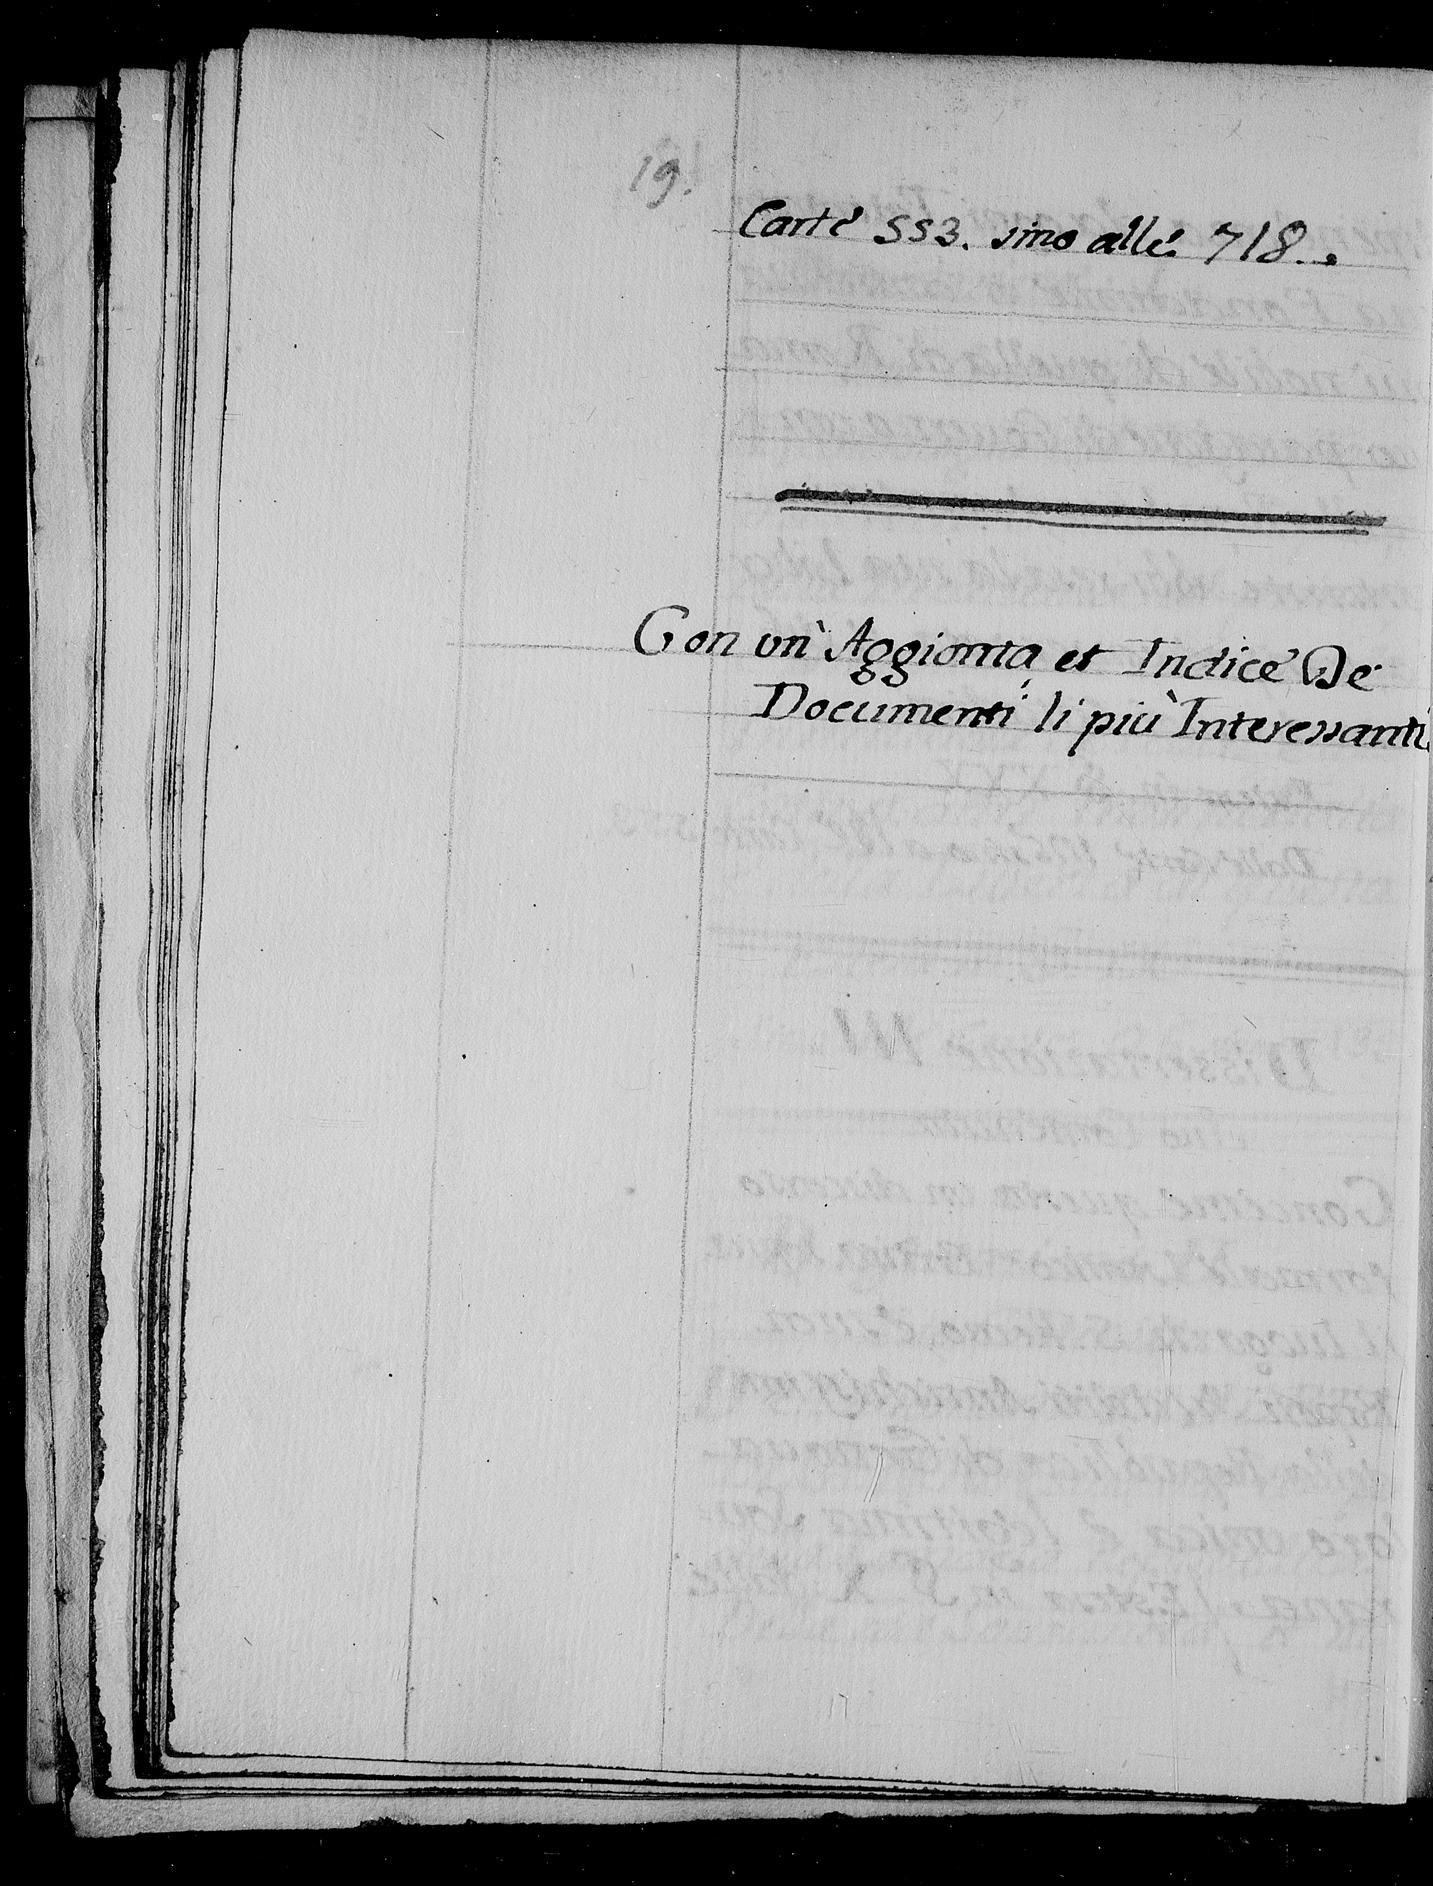 19.
Carte 553. sino alle 718.
Con un' Aggionta et Indice De
Documenti li più Interessanti.